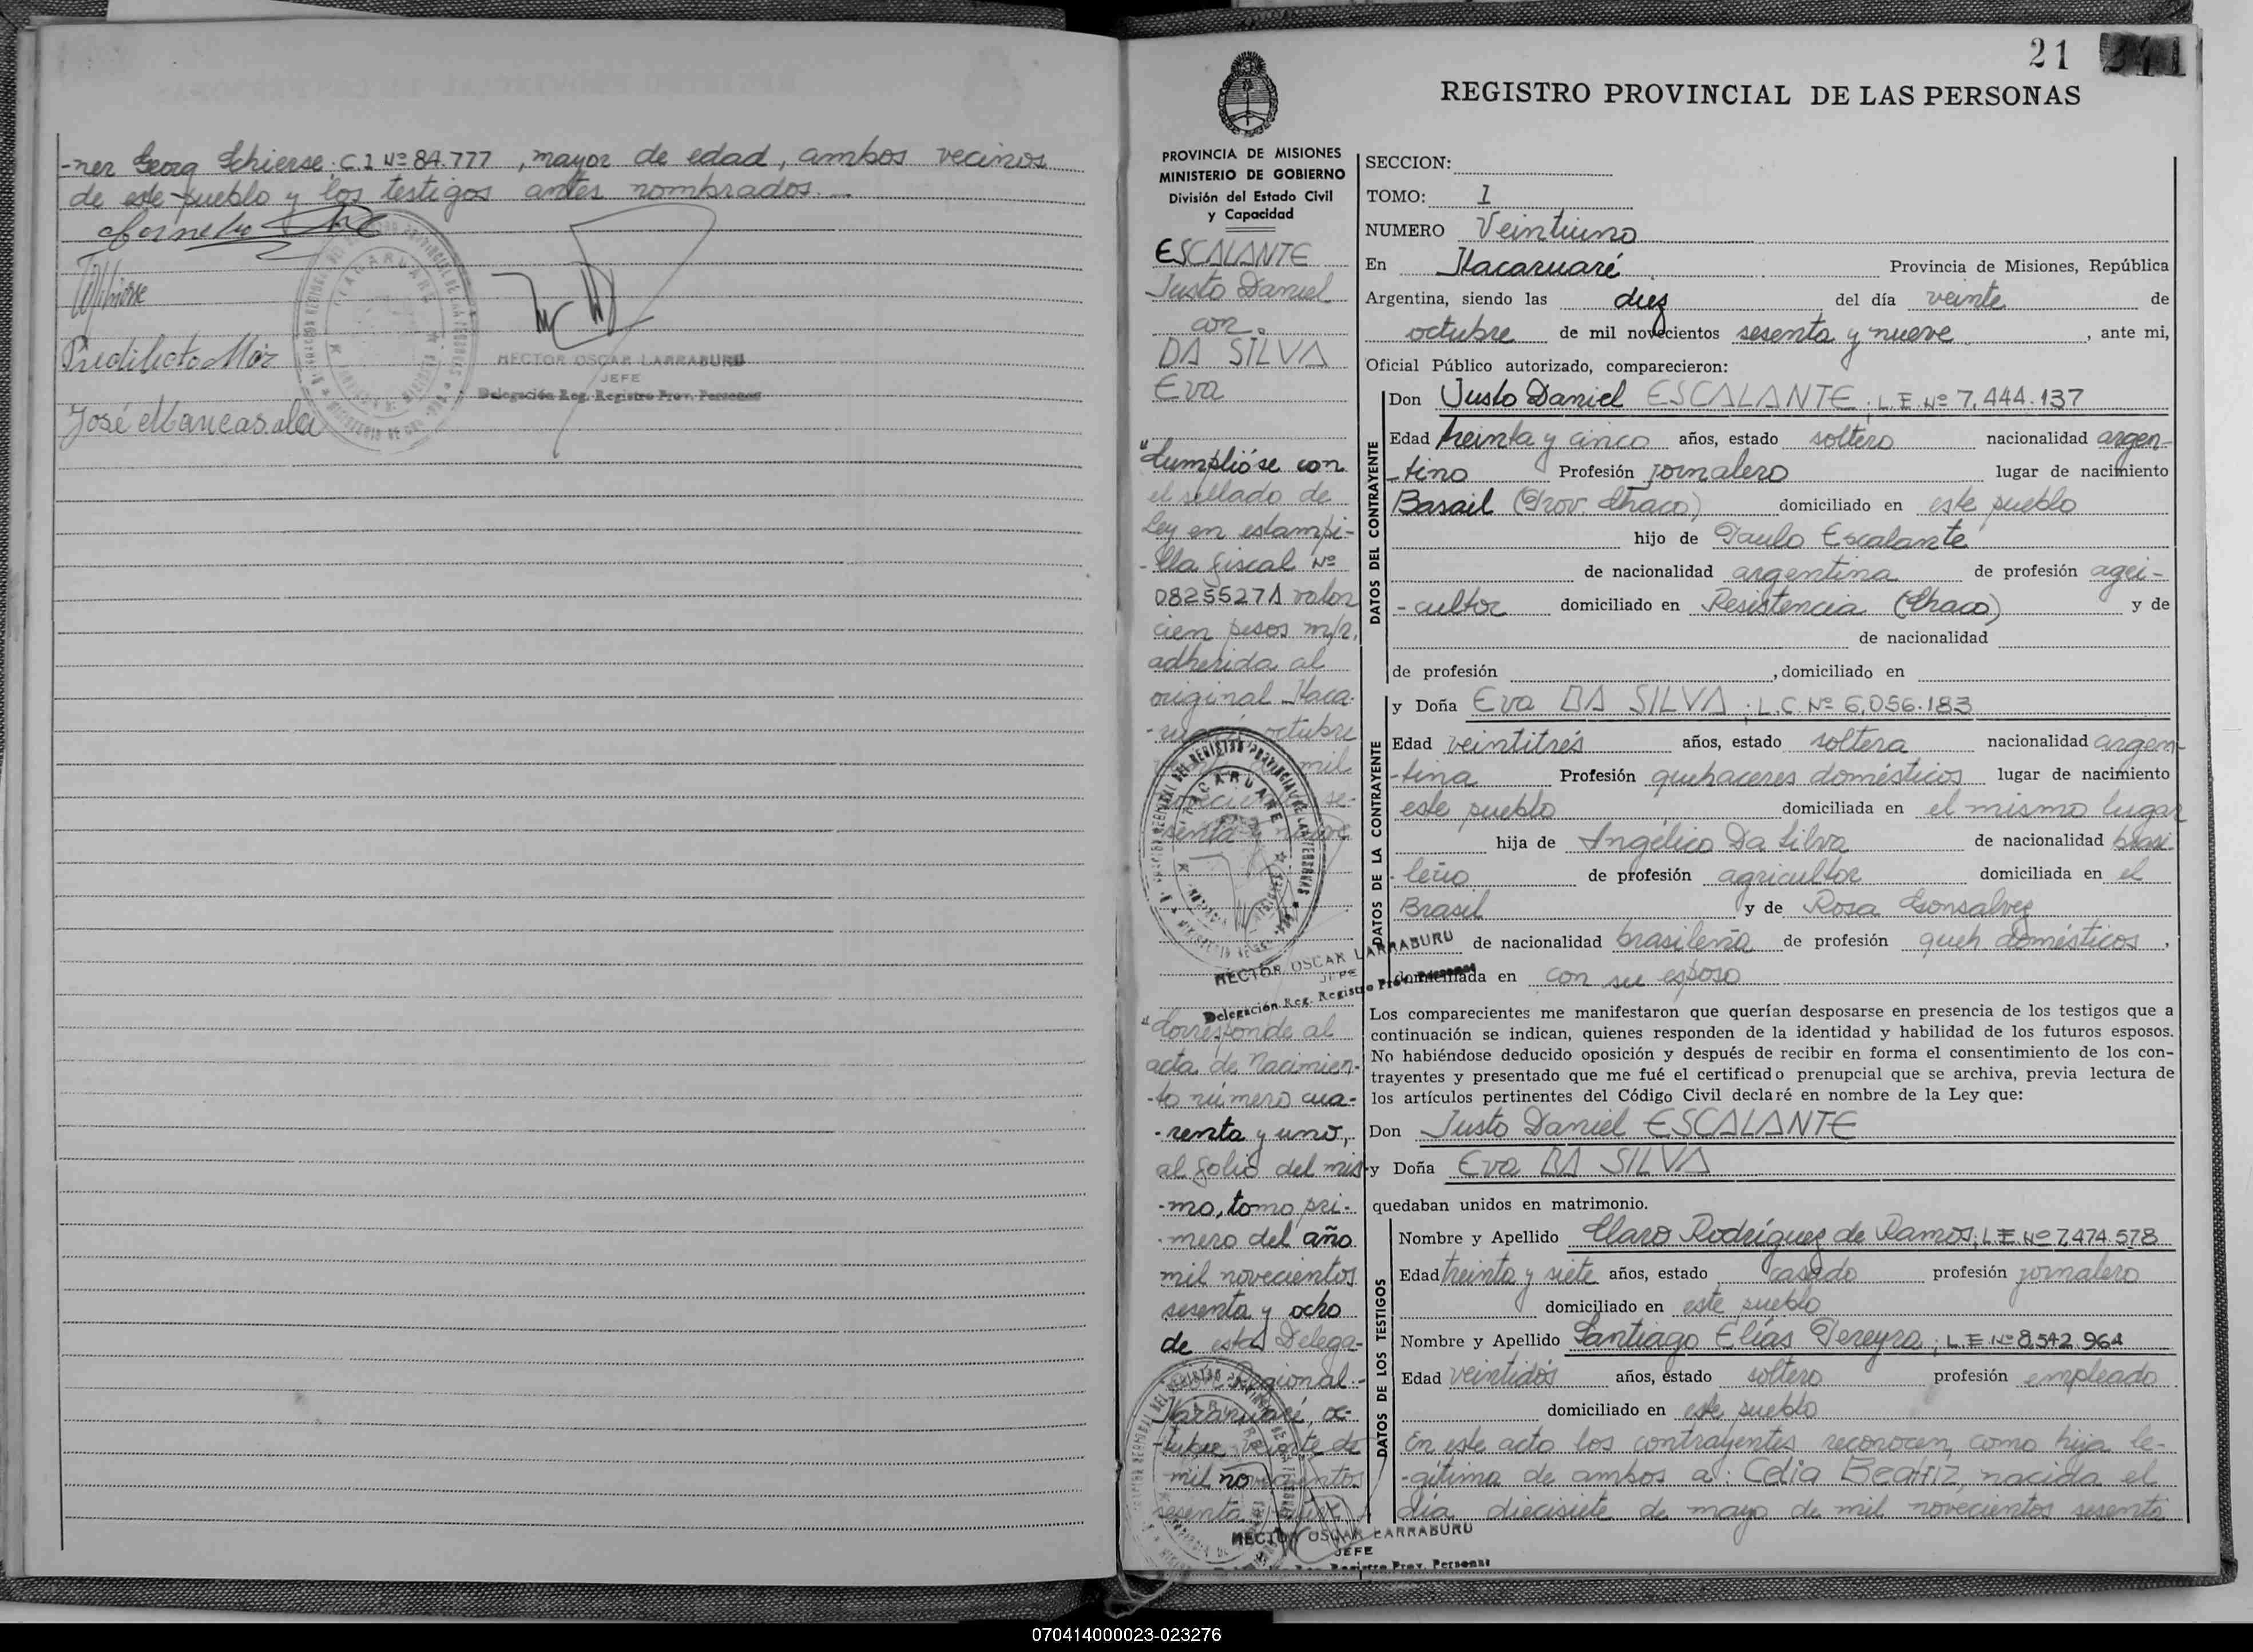 -ner Georg Schierse; C.I Nº 84.777, mayor de edad, ambos vecinos
de este pueblo y los testigos antes nombrados.—
Predilecto Mor
HECTOR OSCAR LARRABURU
JEFE
Delegación Reg. Registro Prov. Personas
José
21
REGISTRO PROVINCIAL DE LAS PERSONAS
PROVINCIA DE MISIONES
MINISTERIO DE GOBIERNO
División del Estado Civil
y Capacidad
ESCALANTE
Justo Daniel
con
DA SILVA
Eva
"Cumplióse con
el sellado de
Ley en estampi-
-lla fiscal Nº
08255271 valor
cien pesos m/n,
adherida al
original. Itaca-
octubre
mil
se-
senta y nueve
HECTOR OSCAR LARRABURU
JEFE
Delegación Reg. Registro Prov. Personas
"Corresponde al
acta de Nacimien-
-to número cua-
-renta y uno,
al folio del mis-
-mo, tomo pri-
-mero del año
mil novecientos
sesenta y ocho
de esta Delega-
Regional.-
Itacaruaré, oc-
-tubre veinte de
mil novecientos
sesenta y nueve
HECTOR OSCAR LARRABURU
JEFE
Registro Prov. Personas
SECCION:
TOMO: I
NUMERO Veintiuno
En Itacaruaré Provincia de Misiones, República
Argentina, siendo las diez del día veinte de
octubre de mil novecientos sesenta y nueve, ante mi,
Oficial Público autorizado, comparecieron:
DATOS DEL CONTRAYENTE
Don Justo Daniel ESCALANTE; L.E. Nº 7.444.137
Edad treinta y cinco años, estado soltero nacionalidad argen-
-tino Profesión jornalero lugar de nacimiento
Basail (Prov. Chaco) domiciliado en este pueblo
hijo de Paulo Escalante
de nacionalidad argentina de profesión agri-
-cultor domiciliado en Resistencia (Chaco) y de
de nacionalidad
de profesión , domiciliado en
DATOS DE LA CONTRAYENTE
y Doña Eva DA SILVA; L.C. Nº 6.056.183
Edad veintitrés años, estado soltera nacionalidad argen-
-tina Profesión quehaceres domésticos lugar de nacimiento
este pueblo domiciliada en el mismo lugar
hija de Angélico Da Silva de nacionalidad brasi-
-leño de profesión agricultor domiciliada en el
Brasil y de Rosa Gonsalvez
de nacionalidad brasileña de profesión queh domésticos,
domiciliada en con su esposo
Los comparecientes me manifestaron que querían desposarse en presencia de los testigos que a
continuación se indican, quienes responden de la identidad y habilidad de los futuros esposos.
No habiéndose deducido oposición y después de recibir en forma el consentimiento de los con-
trayentes y presentado que me fué el certificado prenupcial que se archiva, previa lectura de
los artículos pertinentes del Código Civil declaré en nombre de la Ley que:
Don Justo Daniel ESCALANTE
y Doña Eva DA SILVA
quedaban unidos en matrimonio.
DATOS DE LOS TESTIGOS
Nombre y Apellido Claro Rodríguez de Ramos; L.E. Nº 7.474.578
Edad treinta y siete años, estado casado profesión jornalero
domiciliado en este pueblo
Nombre y Apellido Santiago Elías Pereyra; L.E. Nº 8.542.964
Edad veintidós años, estado soltero profesión empleado
domiciliado en este pueblo
En este acto los contrayentes reconocen como hija le-
-gitima de ambos a: Celia Beatriz, nacida el
día diecisiete de mayo de mil novecientos sesenta
070414000023-023276